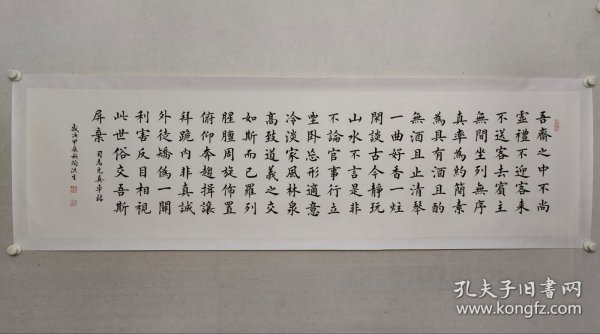 吾齋之中不尚
虛禮不迎客来
不送客去賓主
無間坐列無序
真率為約簡素
為具有酒且酌
無酒且止清琴
一曲好香一炷
閑談古今靜玩
山水不言是非
不論官事行立
坐卧忘形適意
冷淡家風林泉
高致道義之交
如斯而已羅列
腥膻周旋佈置
俯仰奔趨揖讓
拜跪內非真誠
外徒矯偽一關
利害反目相視
此世俗交吾斯
屏棄 司馬光真率銘
歲次甲辰秋
孔夫子旧书网
www.kongfz.com